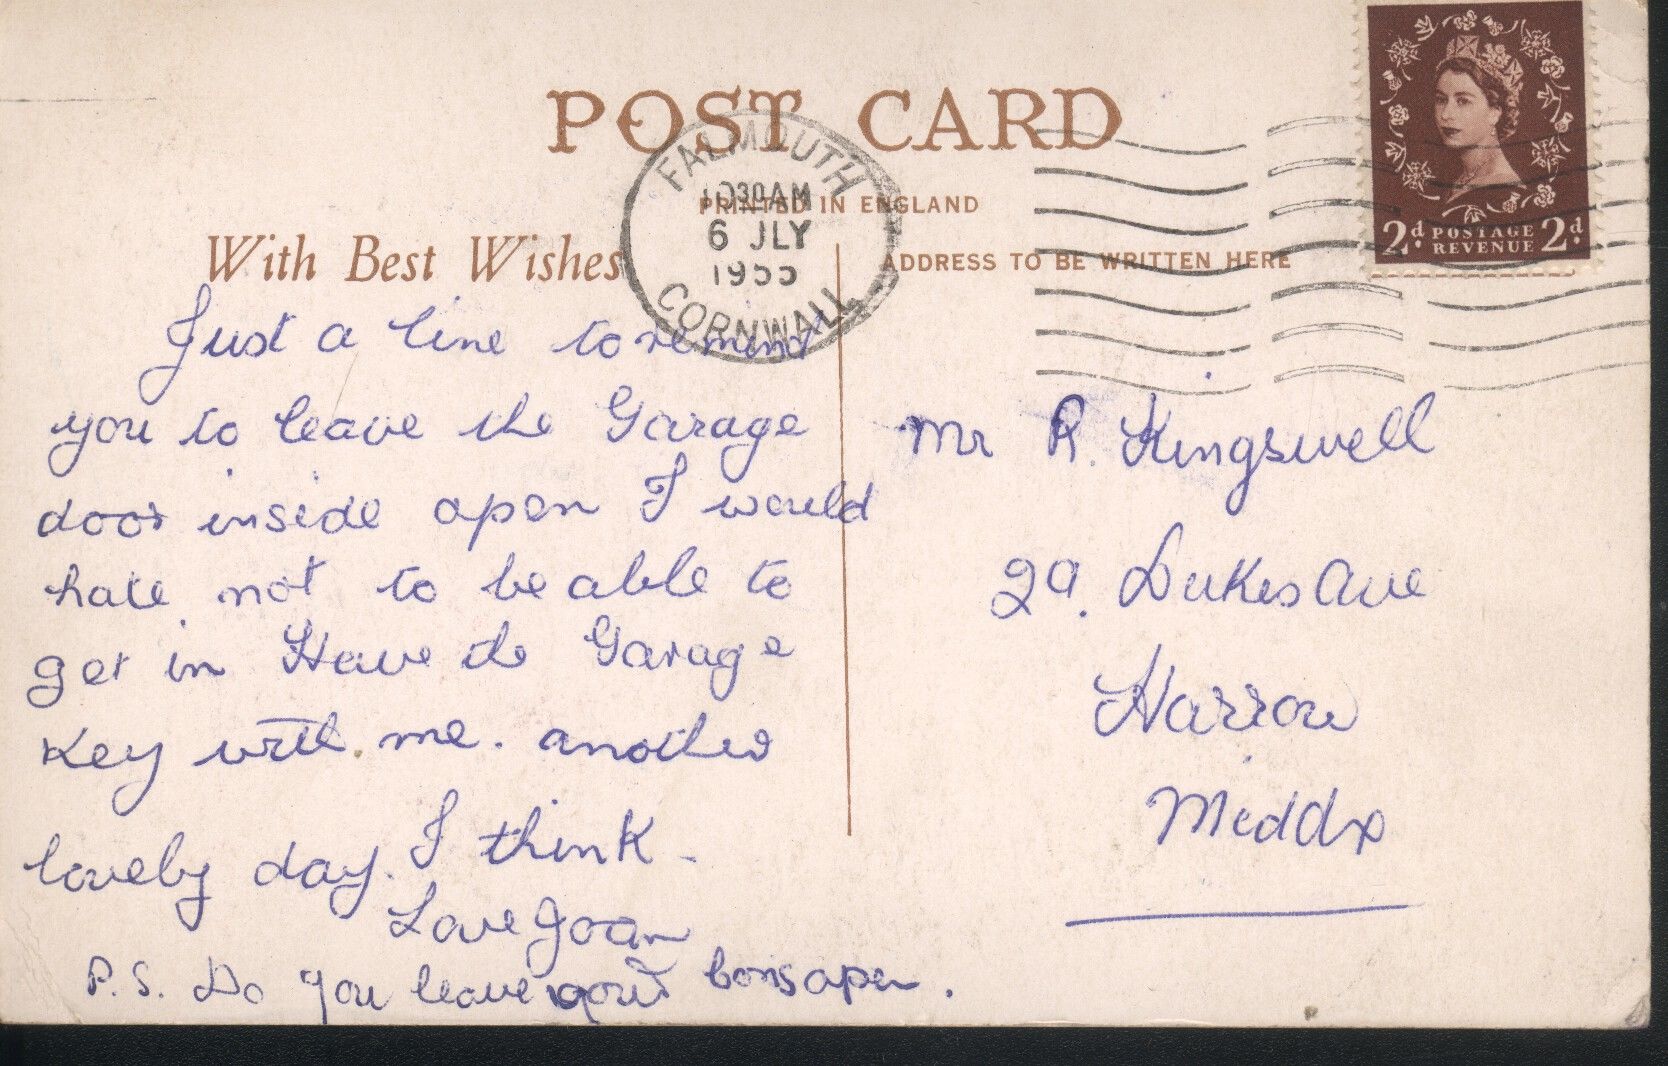 POST CARD
FALMOUTH
10 30AM
6 JLY
1955
CORNWALL
PRINTED IN ENGLAND
With Best Wishes
ADDRESS TO BE WRITTEN HERE
2d. POSTAGE REVENUE 2d.
Just a line to remind
you to leave the Garage
door inside open I would
hate not to be able to
get in Have the Garage
Key with me. another
lovely day. I think
Love Joan
P.S. Do you leave your open.
Mr R. Kingswell
29. Dukes Ave
Harrow
Middx